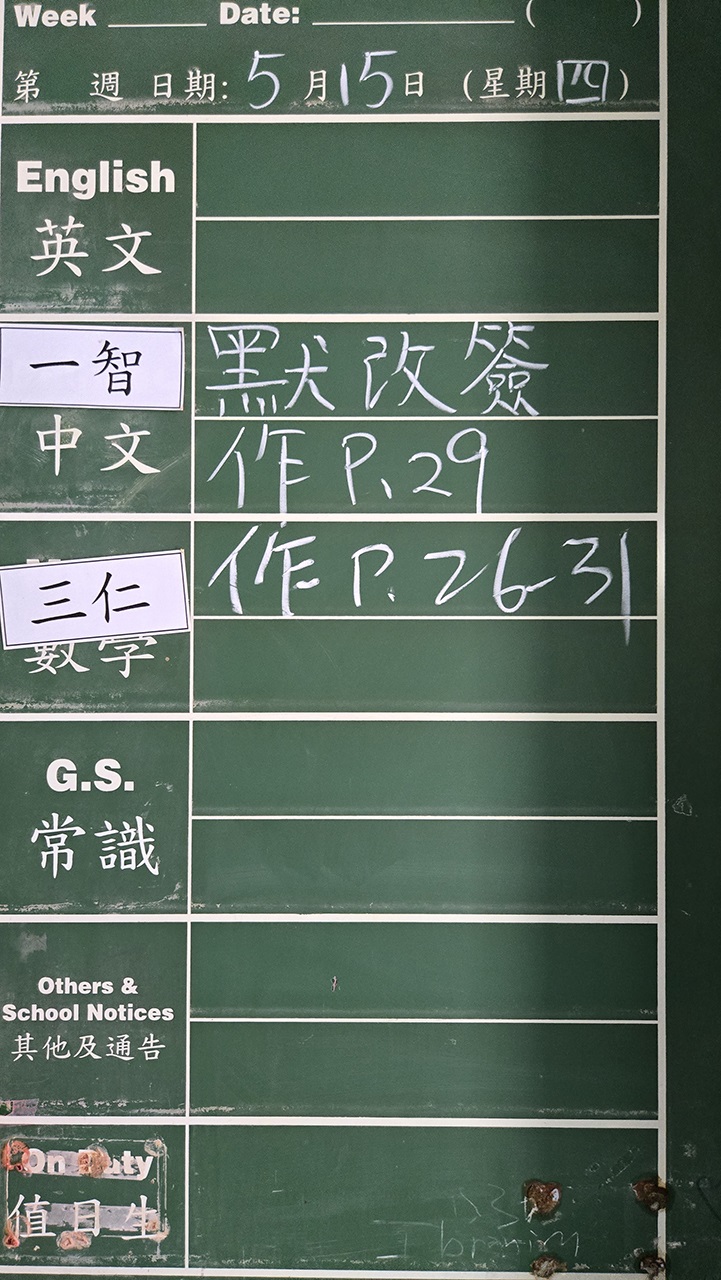 Week Date: ( )
第 週 日期: 5月15日 (星期四)
English
英文
一智
默改簽
中文
作 P.29
三仁
作 P. 26-31
數學
G.S.
常識
Others &
School Notices
其他及通告
On Duty
值日生